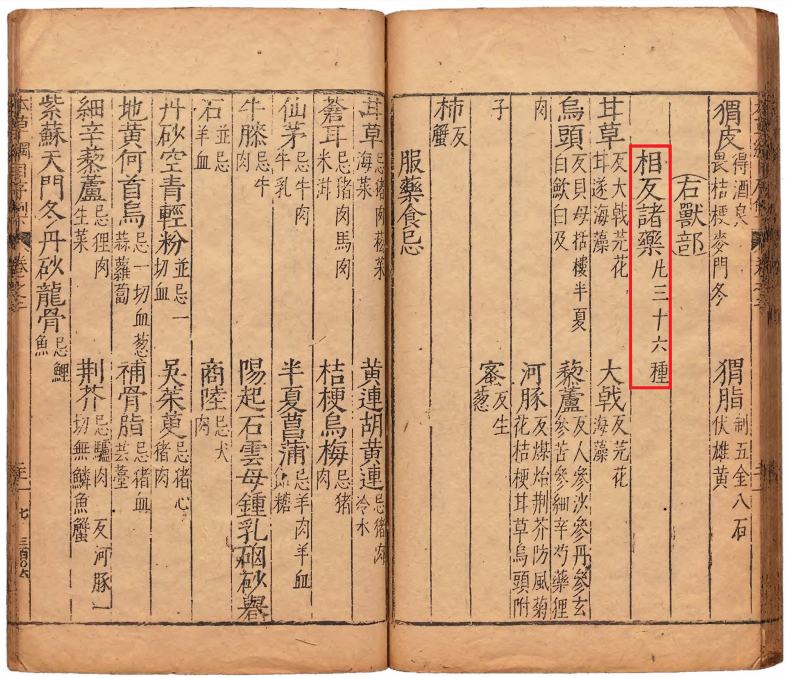 猬皮得酒良畏桔梗麥門冬 猬脂制五金八石伏雄黄
右獸部
相反諸藥凡三十六種
甘草反大戟芫花甘遂海藻 大戟反芫花海藻
烏頭反貝母栝樓半夏白斂白及 藜蘆反人參沙參丹參玄參苦參細辛芍藥狸
肉 河豚反煤炲荆芥防風菊花桔梗甘草烏頭附
子 蜜反生葱
柿反蟹
服藥食忌
甘草忌豬肉菘菜海菜 黄連胡黄連忌豬肉冷水
蒼耳忌豬肉馬肉米泔 桔梗烏梅忌豬肉
仙茅忌牛肉牛乳 半夏菖蒲忌羊肉羊血飴糖
牛膝忌牛肉 陽起石雲母鍾乳硇砂礜
石並忌羊血 商陸忌犬肉
丹砂空青輕粉並忌一切血 吳茱萸忌豬心豬肉
地黄何首烏忌一切血葱蒜蘿蔔 補骨脂忌豬血芸薹
細辛藜蘆忌狸肉生菜 荆芥忌驢肉反河豚一切無鱗魚蟹
紫蘇天門冬丹砂龍骨忌鯉魚
本草綱目序例下 卷之二 七 三百〇六